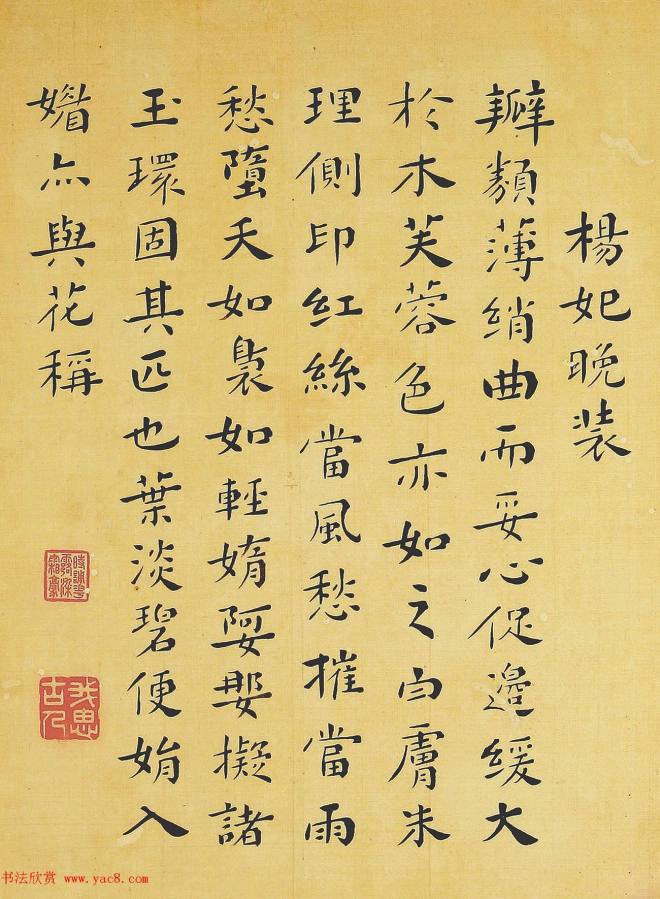 楊妃晚装
瓣類薄綃曲而妥心促邉緩大
於木芙蓉色亦如之白膚朱
理側印紅絲當風愁摧當雨
愁墮夭如裊如輕婧婴擬諸
玉環固其匹也葉淡碧便娟入
媚亦與花稱
我思古人
书法欣赏 www.yac8.com